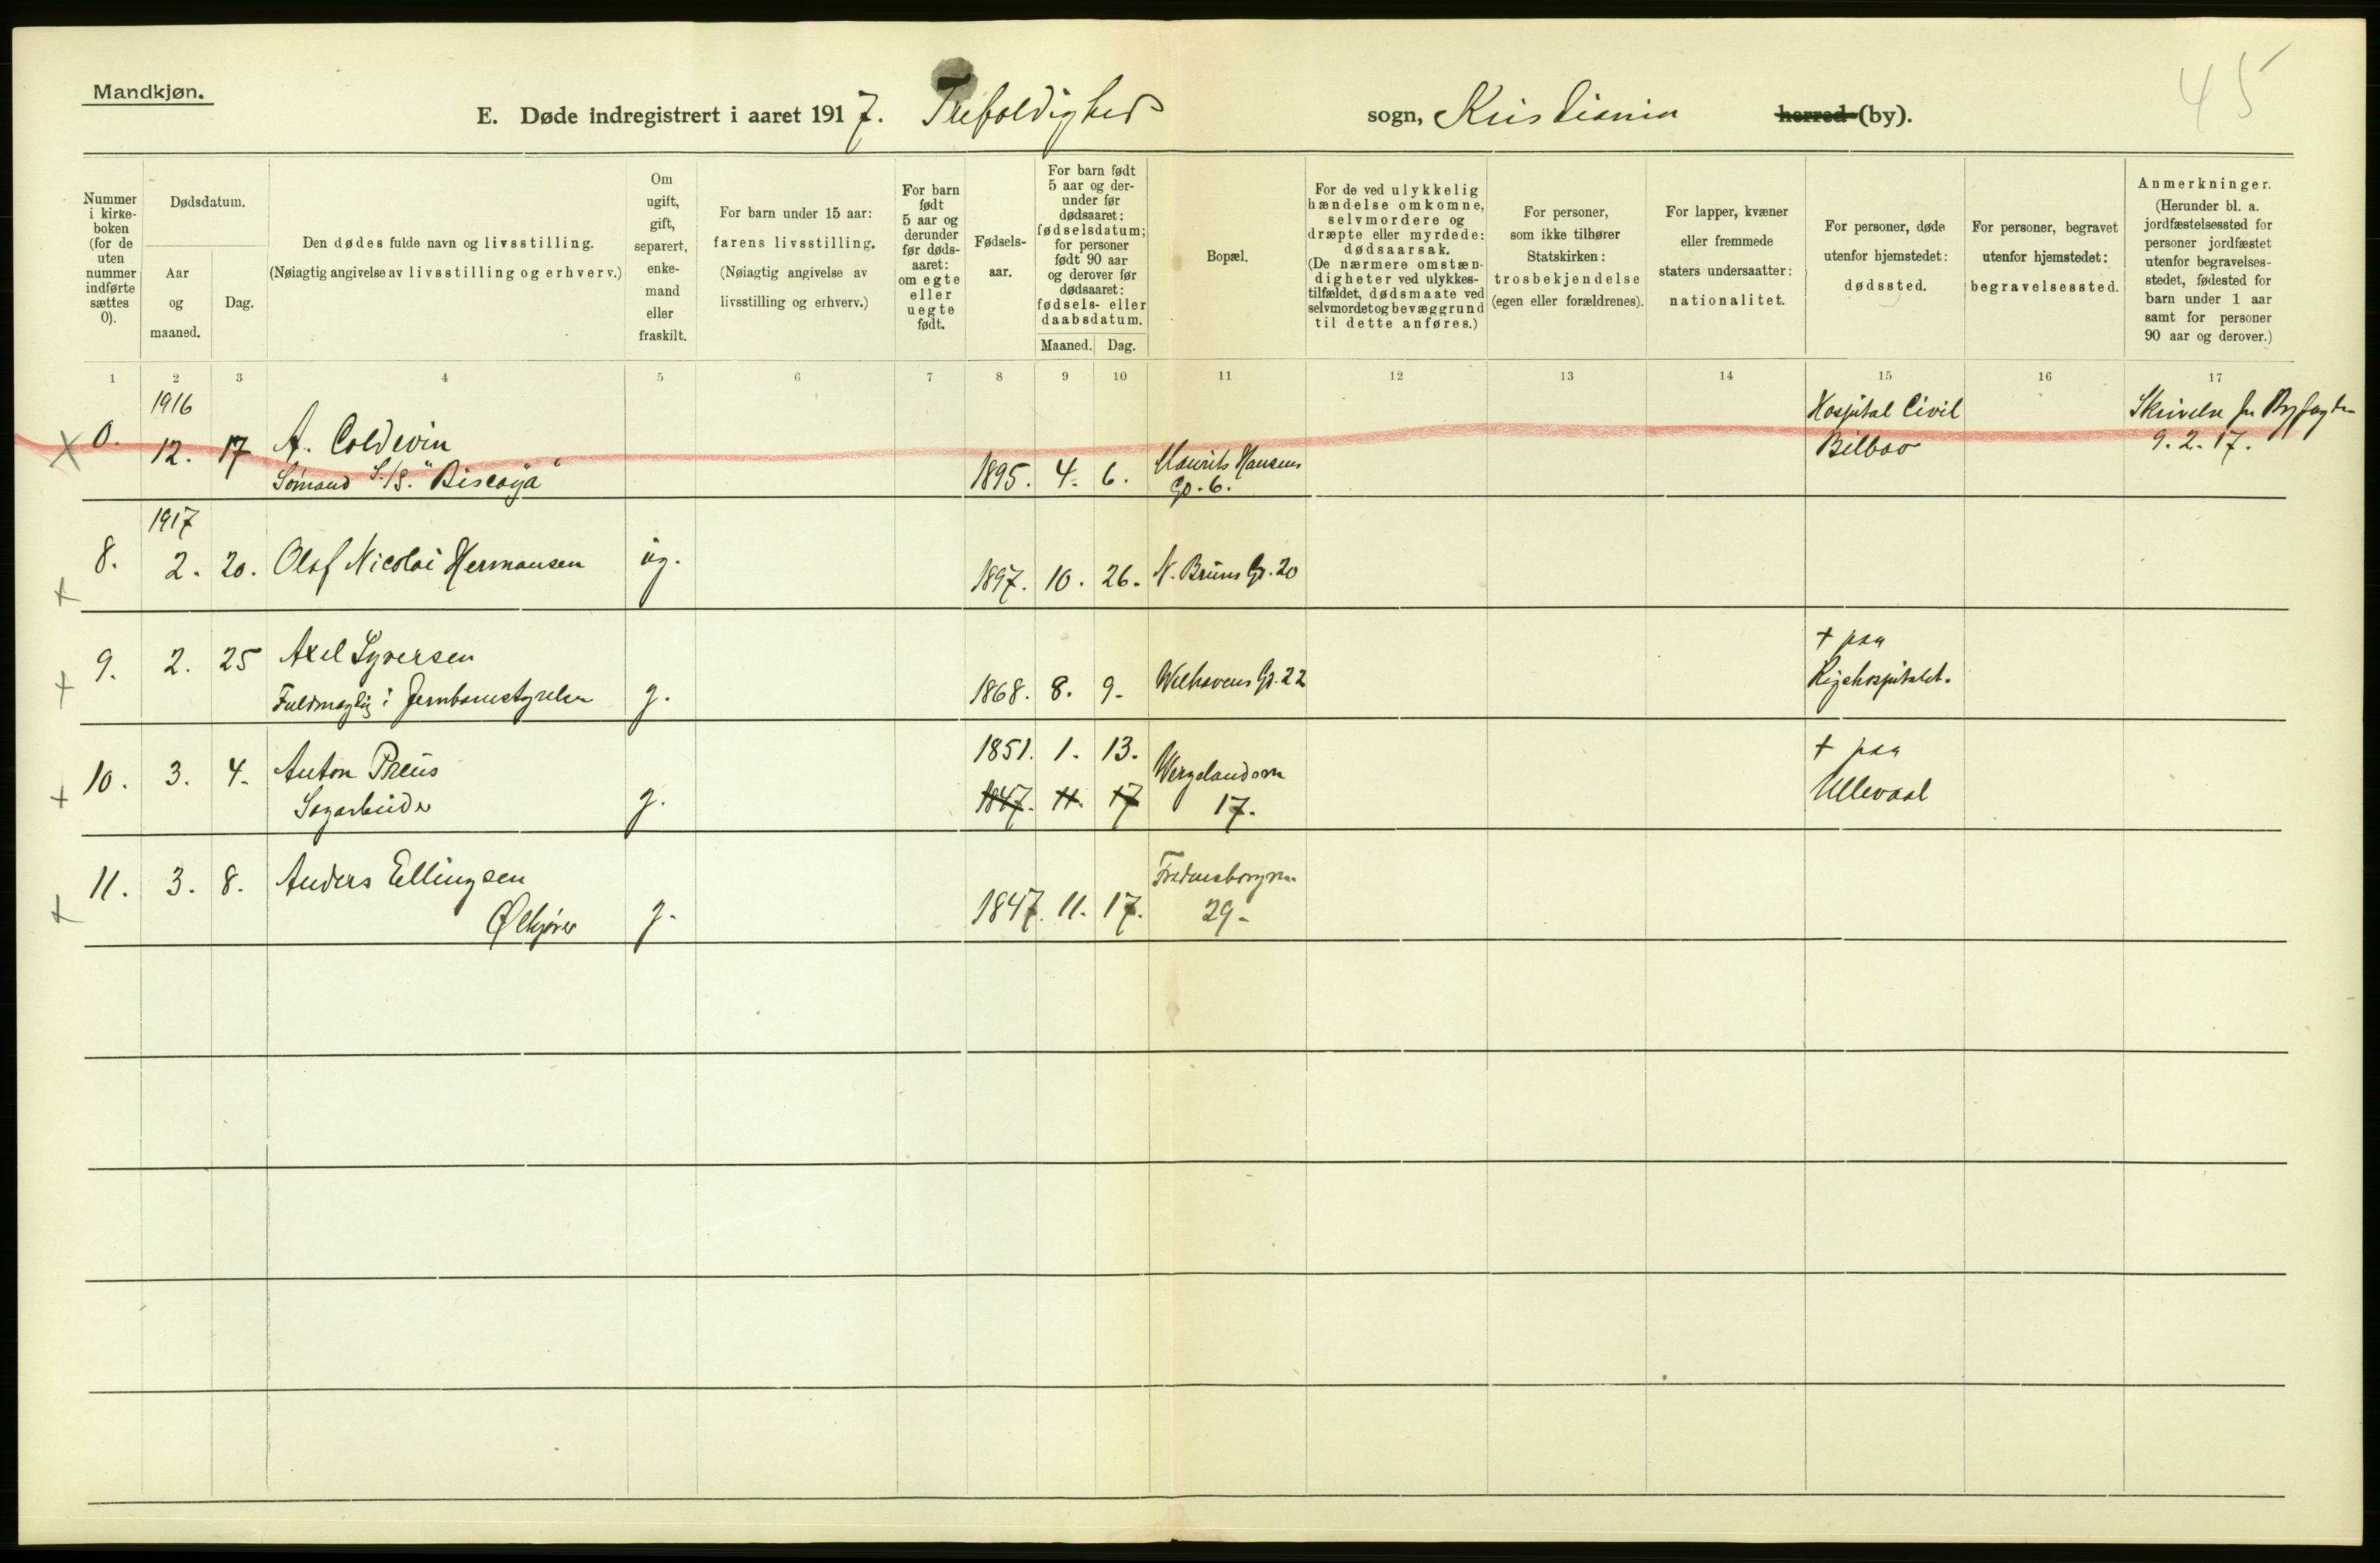 Mandkjøn.
45
E. Døde indregistrert i aaret 1917. Trefoldighed sogn, Kristiania herred (by).
Nummer i kirke- boken (for de uten nummer indførte sættes 0).
Dødsdatum.
Aar og maaned.
Dag.
Den dødes fulde navn og livsstilling.
(Nøiagtig angivelse av livsstilling og erhverv.)
Om ugift, gift, separert, enke- mand eller fraskilt.
For barn under 15 aar:
farens livsstilling.
(Nøiagtig angivelse av
livsstilling og erhverv.)
For barn født 5 aar og derunder før døds- aaret: om egte eller uegte født.
Fødsels- aar.
For barn født 5 aar og der- under før dødsaaret: fødselsdatum; for personer født 90 aar og derover før dødsaaret: fødsels- eller daabsdatum.
Maaned. Dag.
Bopæl.
For de ved ulykkelig hændelse omkomne, selvmordere og dræpte eller myrdede: dødsaarsak. (De nærmere omstæn- digheter ved ulykkes- tilfældet, dødsmaate ved selvmordet og bevæggrund til dette anføres.)
For personer, som ikke tilhører Statskirken: trosbekjendelse (egen eller forældrenes).
For lapper, kvæner eller fremmede staters undersaatter: nationalitet.
For personer, døde utenfor hjemstedet: dødssted.
For personer, begravet utenfor hjemstedet: begravelsessted.
Anmerkninger.
(Herunder bl. a. jordfæstelsessted for personer jordfæstet utenfor begravelses- stedet, fødested for barn under 1 aar samt for personer 90 aar og derover.)
1 2 3 4 5 6 7 8 9 10 11 12 13 14 15 16 17
1916 Hospital Civil Skrivelse
0. 12. 17 A. Coldevin Bilbao 9.2.17.
Sømand S/S. "Biscaya" 1895. 4. 6. Maurits Hansens
G. 6.
1917
8. 2. 20. Olaf Nicolai Hermansen ug. 1897. 10. 26. N. Bruns G. 20
9. 2. 25 Axel Syversen + paa
Fuldmægtig i Jernbanestyrelsen g. 1868. 8. 9. Welhavens G. 22 Rigshospitalet.
10. 3. 4. Anton Preus 1851. 1. 13. Wergelandsvn + paa
Sagarbeider g. 1847. 11. 17 17. Ullevaal
11. 3. 8. Anders Ellingsen Fredensborgvn.
Ølkjører g. 1847. 11. 17. 29.